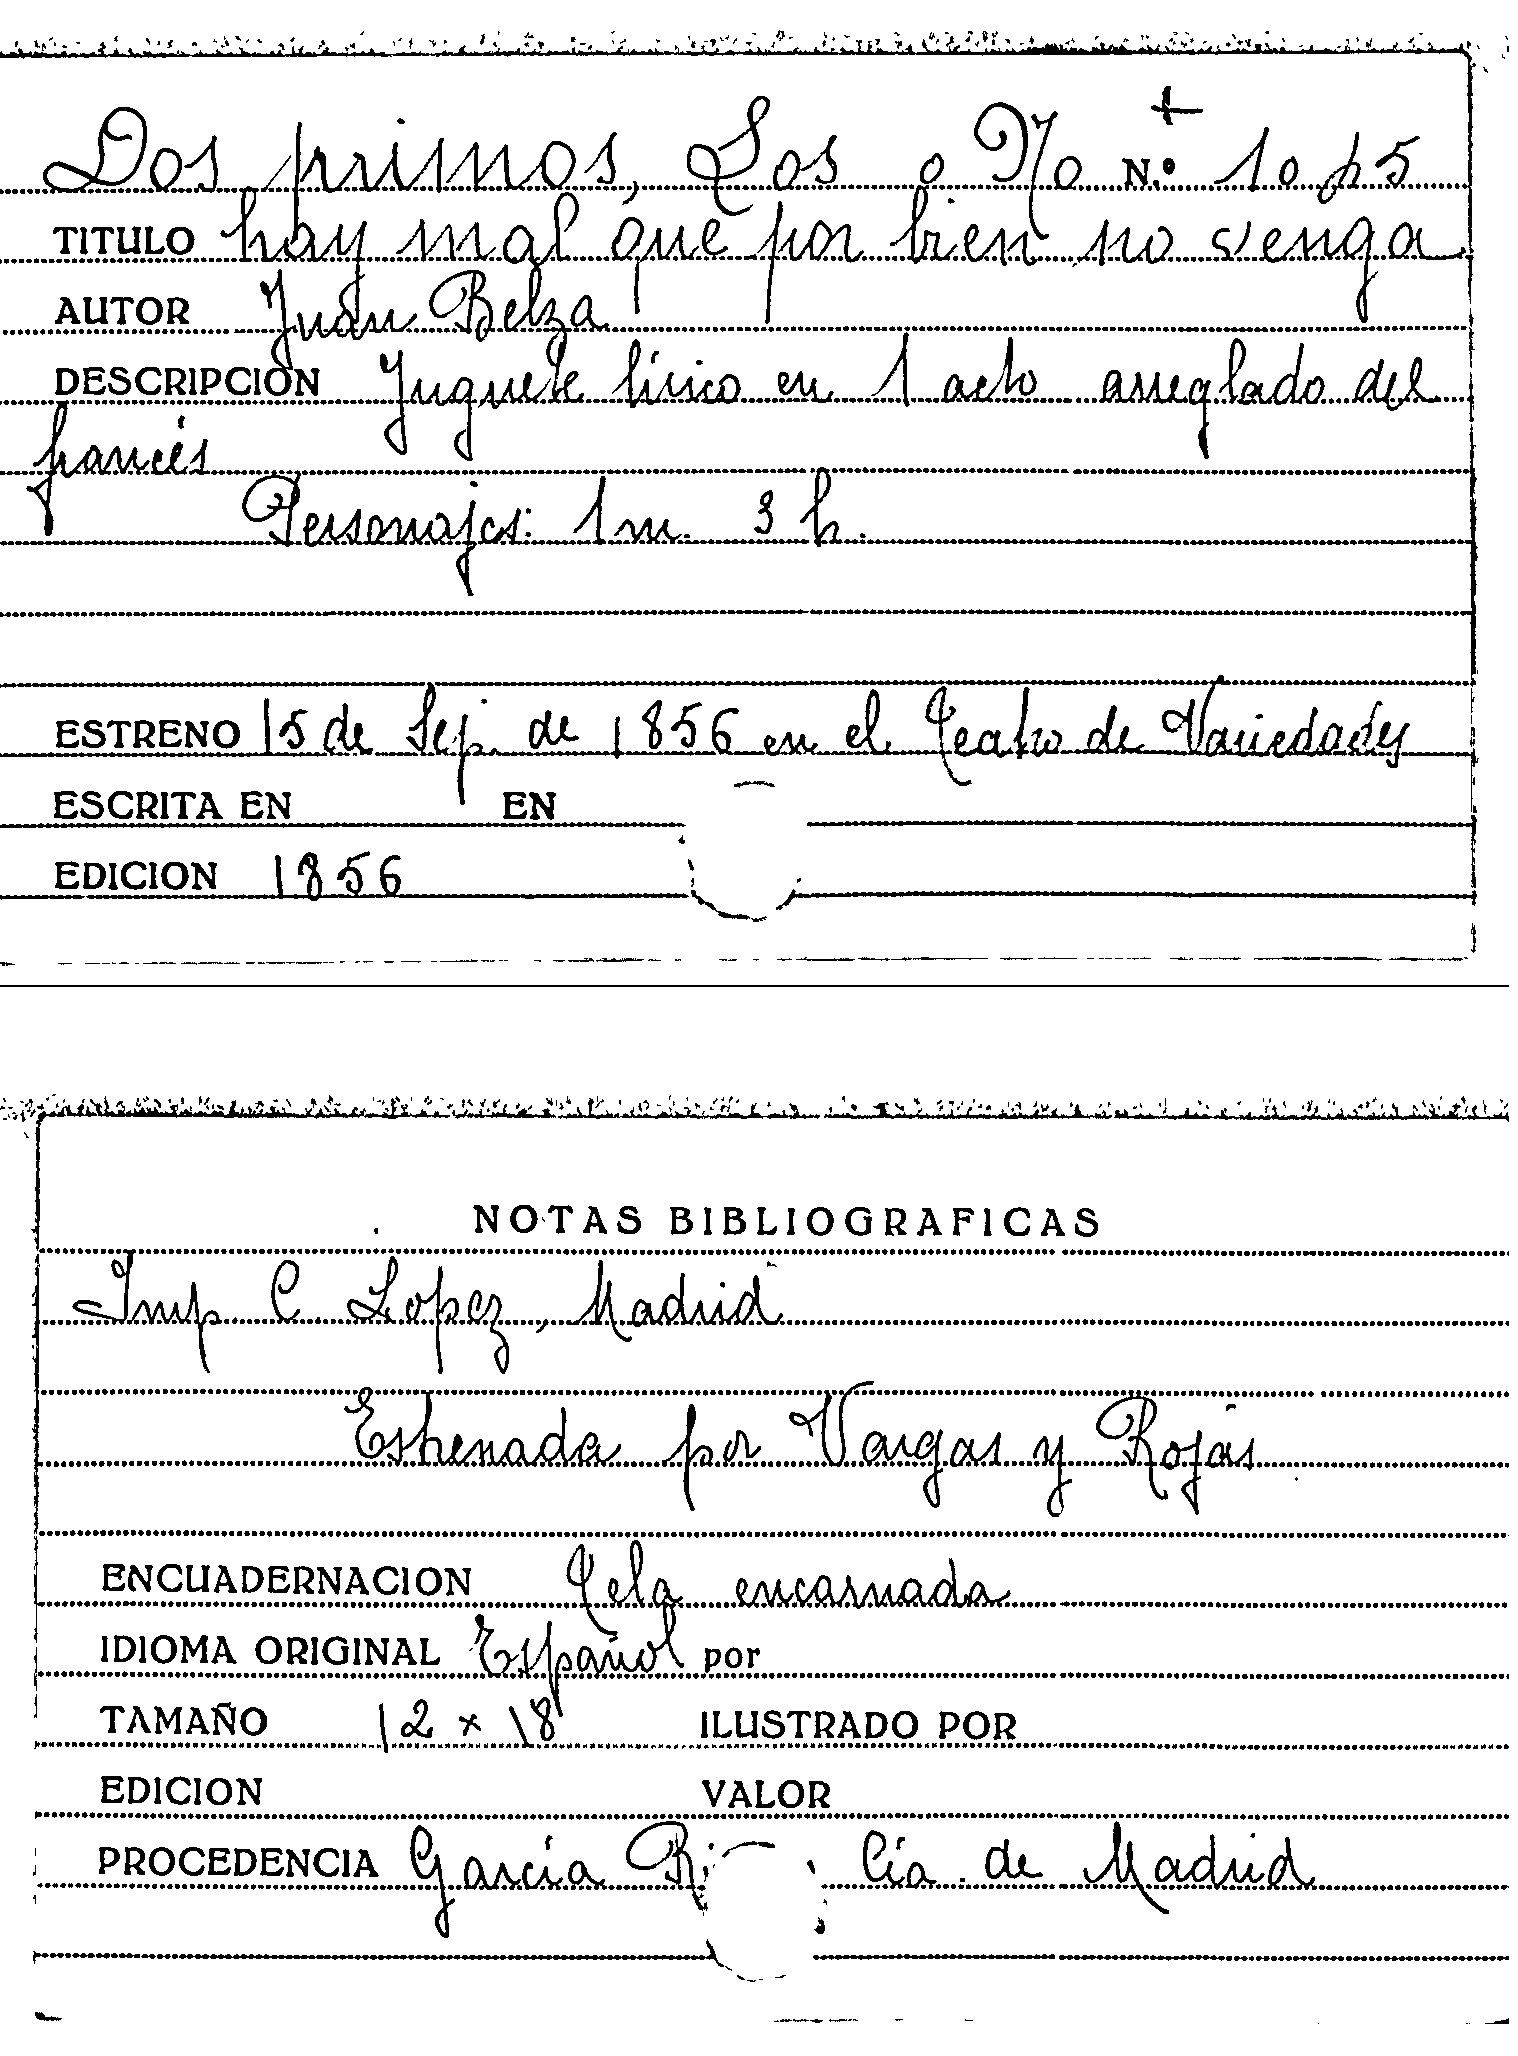 Dos primos, Los o No N.º
TITULO hay mal que por bien no venga
AUTOR Juan Belza
DESCRIPCION Juguete lírico en 1 acto arreglado del
francés
Personajes: 1 m. 3 h.
ESTRENO 15 de Sep. de 1856 en el Teatro de Variedades
ESCRITA EN EN
EDICION 1856
NOTAS BIBLIOGRAFICAS
Imp C. Lopez, Madrid
Estrenada por Vargas y Rojas
ENCUADERNACION Tela encarnada
IDIOMA ORIGINAL Español por
TAMAÑO 12 x 18 ILUSTRADO POR
EDICION VALOR
PROCEDENCIA García Cía. de Madrid